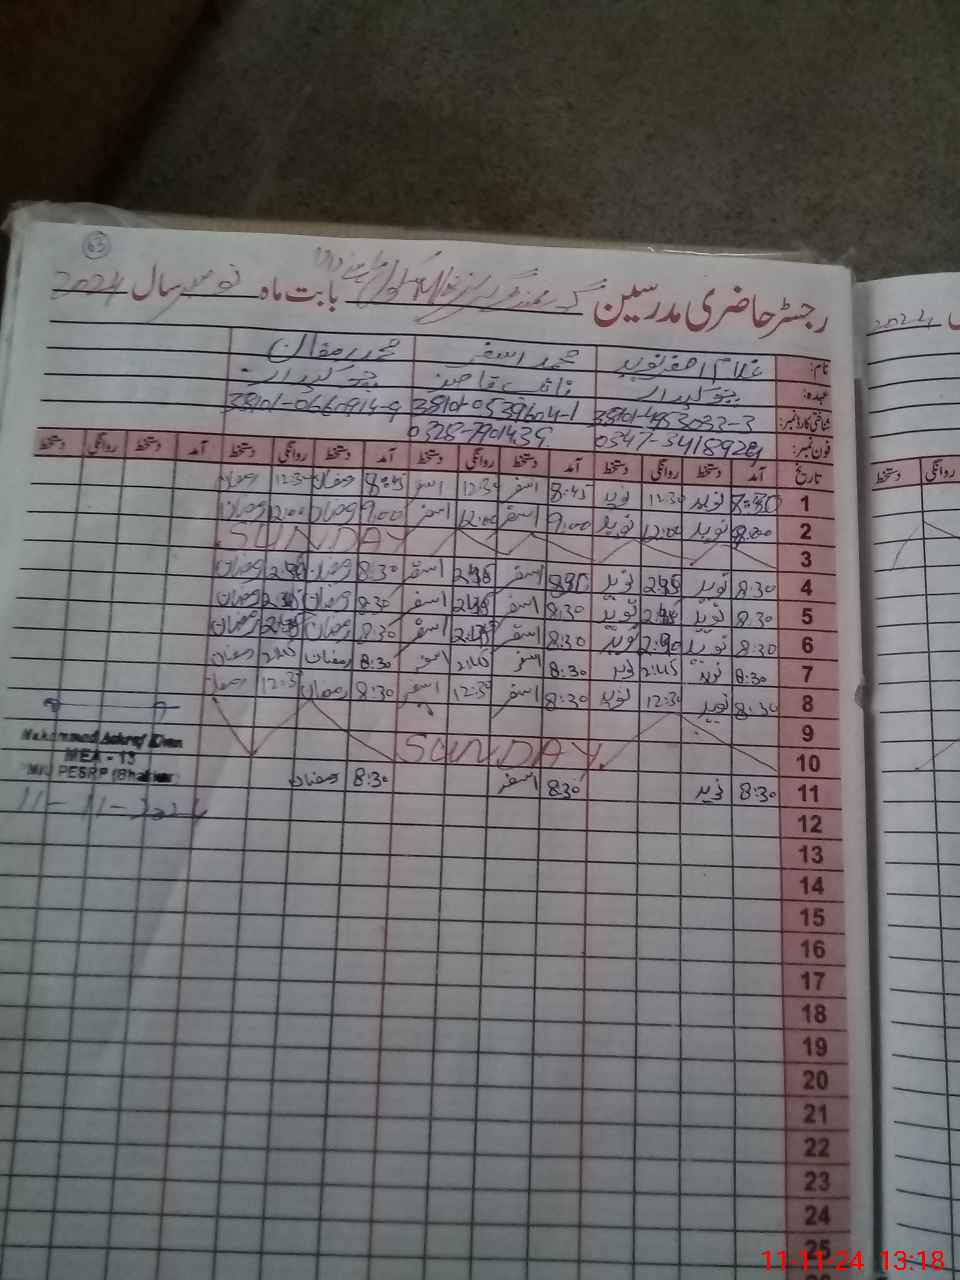 63
رجسٹر حاضری مدرسین بابت ماہ نومبر سال 2024
نام: غلام اصغر نوید محمد اسفر محمد رمضان
عہدہ: چوکیدار نائب قاصد چوکیدار
شناختی کارڈ نمبر: 38101-0539604-1 38101-0660914-9
فون نمبر: 0347-5418928 0328-7901439
تاریخ آمد دستخط روانگی دستخط آمد دستخط روانگی دستخط آمد دستخط روانگی دستخط آمد دستخط روانگی دستخط
1 8:30 نوید 12:30 نوید 8:45 اسفر 12:30 اسفر 8:45 رمضان 12:30 رمضان
2 9:00 نوید 12:00 نوید 9:00 اسفر 12:00 اسفر 9:00 رمضان 12:00 رمضان
3 SUNDAY
4 8:30 نوید 2:45 نوید 8:30 اسفر 2:45 اسفر 8:30 رمضان 2:45 رمضان
5 8:30 نوید 2:45 نوید 8:30 اسفر 2:45 اسفر 8:30 رمضان 2:45 رمضان
6 8:30 نوید نوید 8:30 اسفر 2:45 اسفر 8:30 رمضان 2:45 رمضان
7 8:30 نوید 2:45 نوید 8:30 اسفر 2:45 اسفر 8:30 رمضان 2:45 رمضان
8 8:30 نوید 12:30 نوید 8:30 اسفر 12:30 اسفر 8:30 رمضان 12:30 رمضان
9
10 SUNDAY
11 8:30 نوید 830 اسفر 8:30 رمضان
12
13
14
15
16
17
18
19
20
21
22
23
24
25
Muhammad Ashraf Khan
MEA - 13
PESRP (Bhakkar)
11-11-2024
2024
روانگی دستخط
11-11-24 13:18